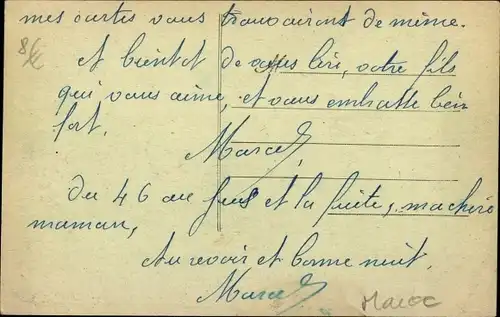 mes cartes vous trouveront de même.
et bientot de vous lire, votre fils
qui vous aime, et vous embrasse bein
fort.
Marcel
du 46 au jus et la fuite, ma chère
maman,
Au revoir et bonne nuit.
Marcel
Maroc